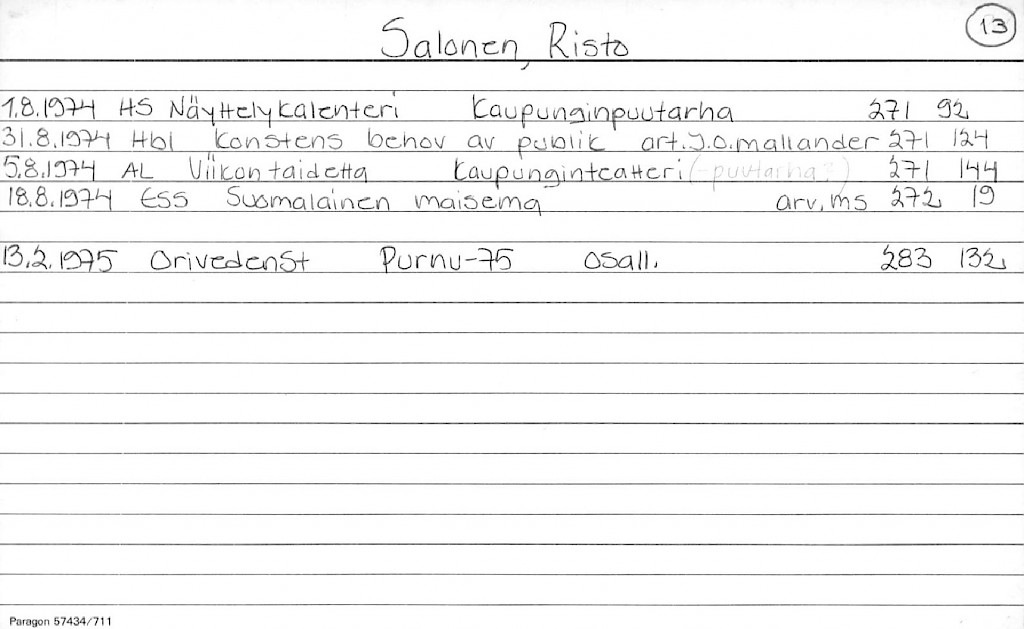 Salonen, Risto 13
1.8.1974 HS Näyttelykalenteri Kaupunginpuutarha 271 92
31.8.1974 Hbl Konstens behov av publik art. J.O. mallander 271 124
5.8.1974 AL Viikon taidetta Kaupunginteatteri (-puutarha?) 271 144
18.8.1974 ESS Suomalainen maisema arv. ms 272 19
13.2.1975 OrivedenSt Purnu-75 osall. 283 132
Paragon 57434/711